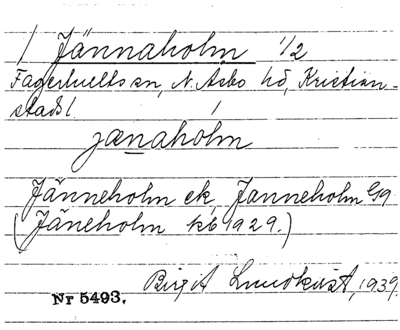 / Jännaholm 1/2
Fagerhults sn, N. Asbo hd, Kristian-
stads l.
jænahòlm
Jänneholm ek, Janneholm
(Jäneholm kb 1929.)
Birgit Lundkvist, 1939.
Nr 5493.